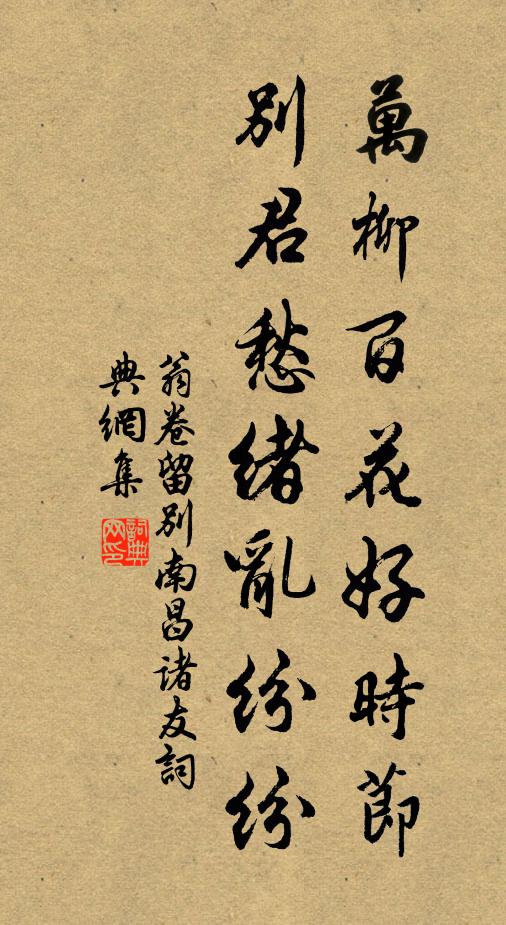 萬柳百花好時節
別君愁緒亂紛紛
翁卷留別南昌諸友詞
典網集
詞典網印